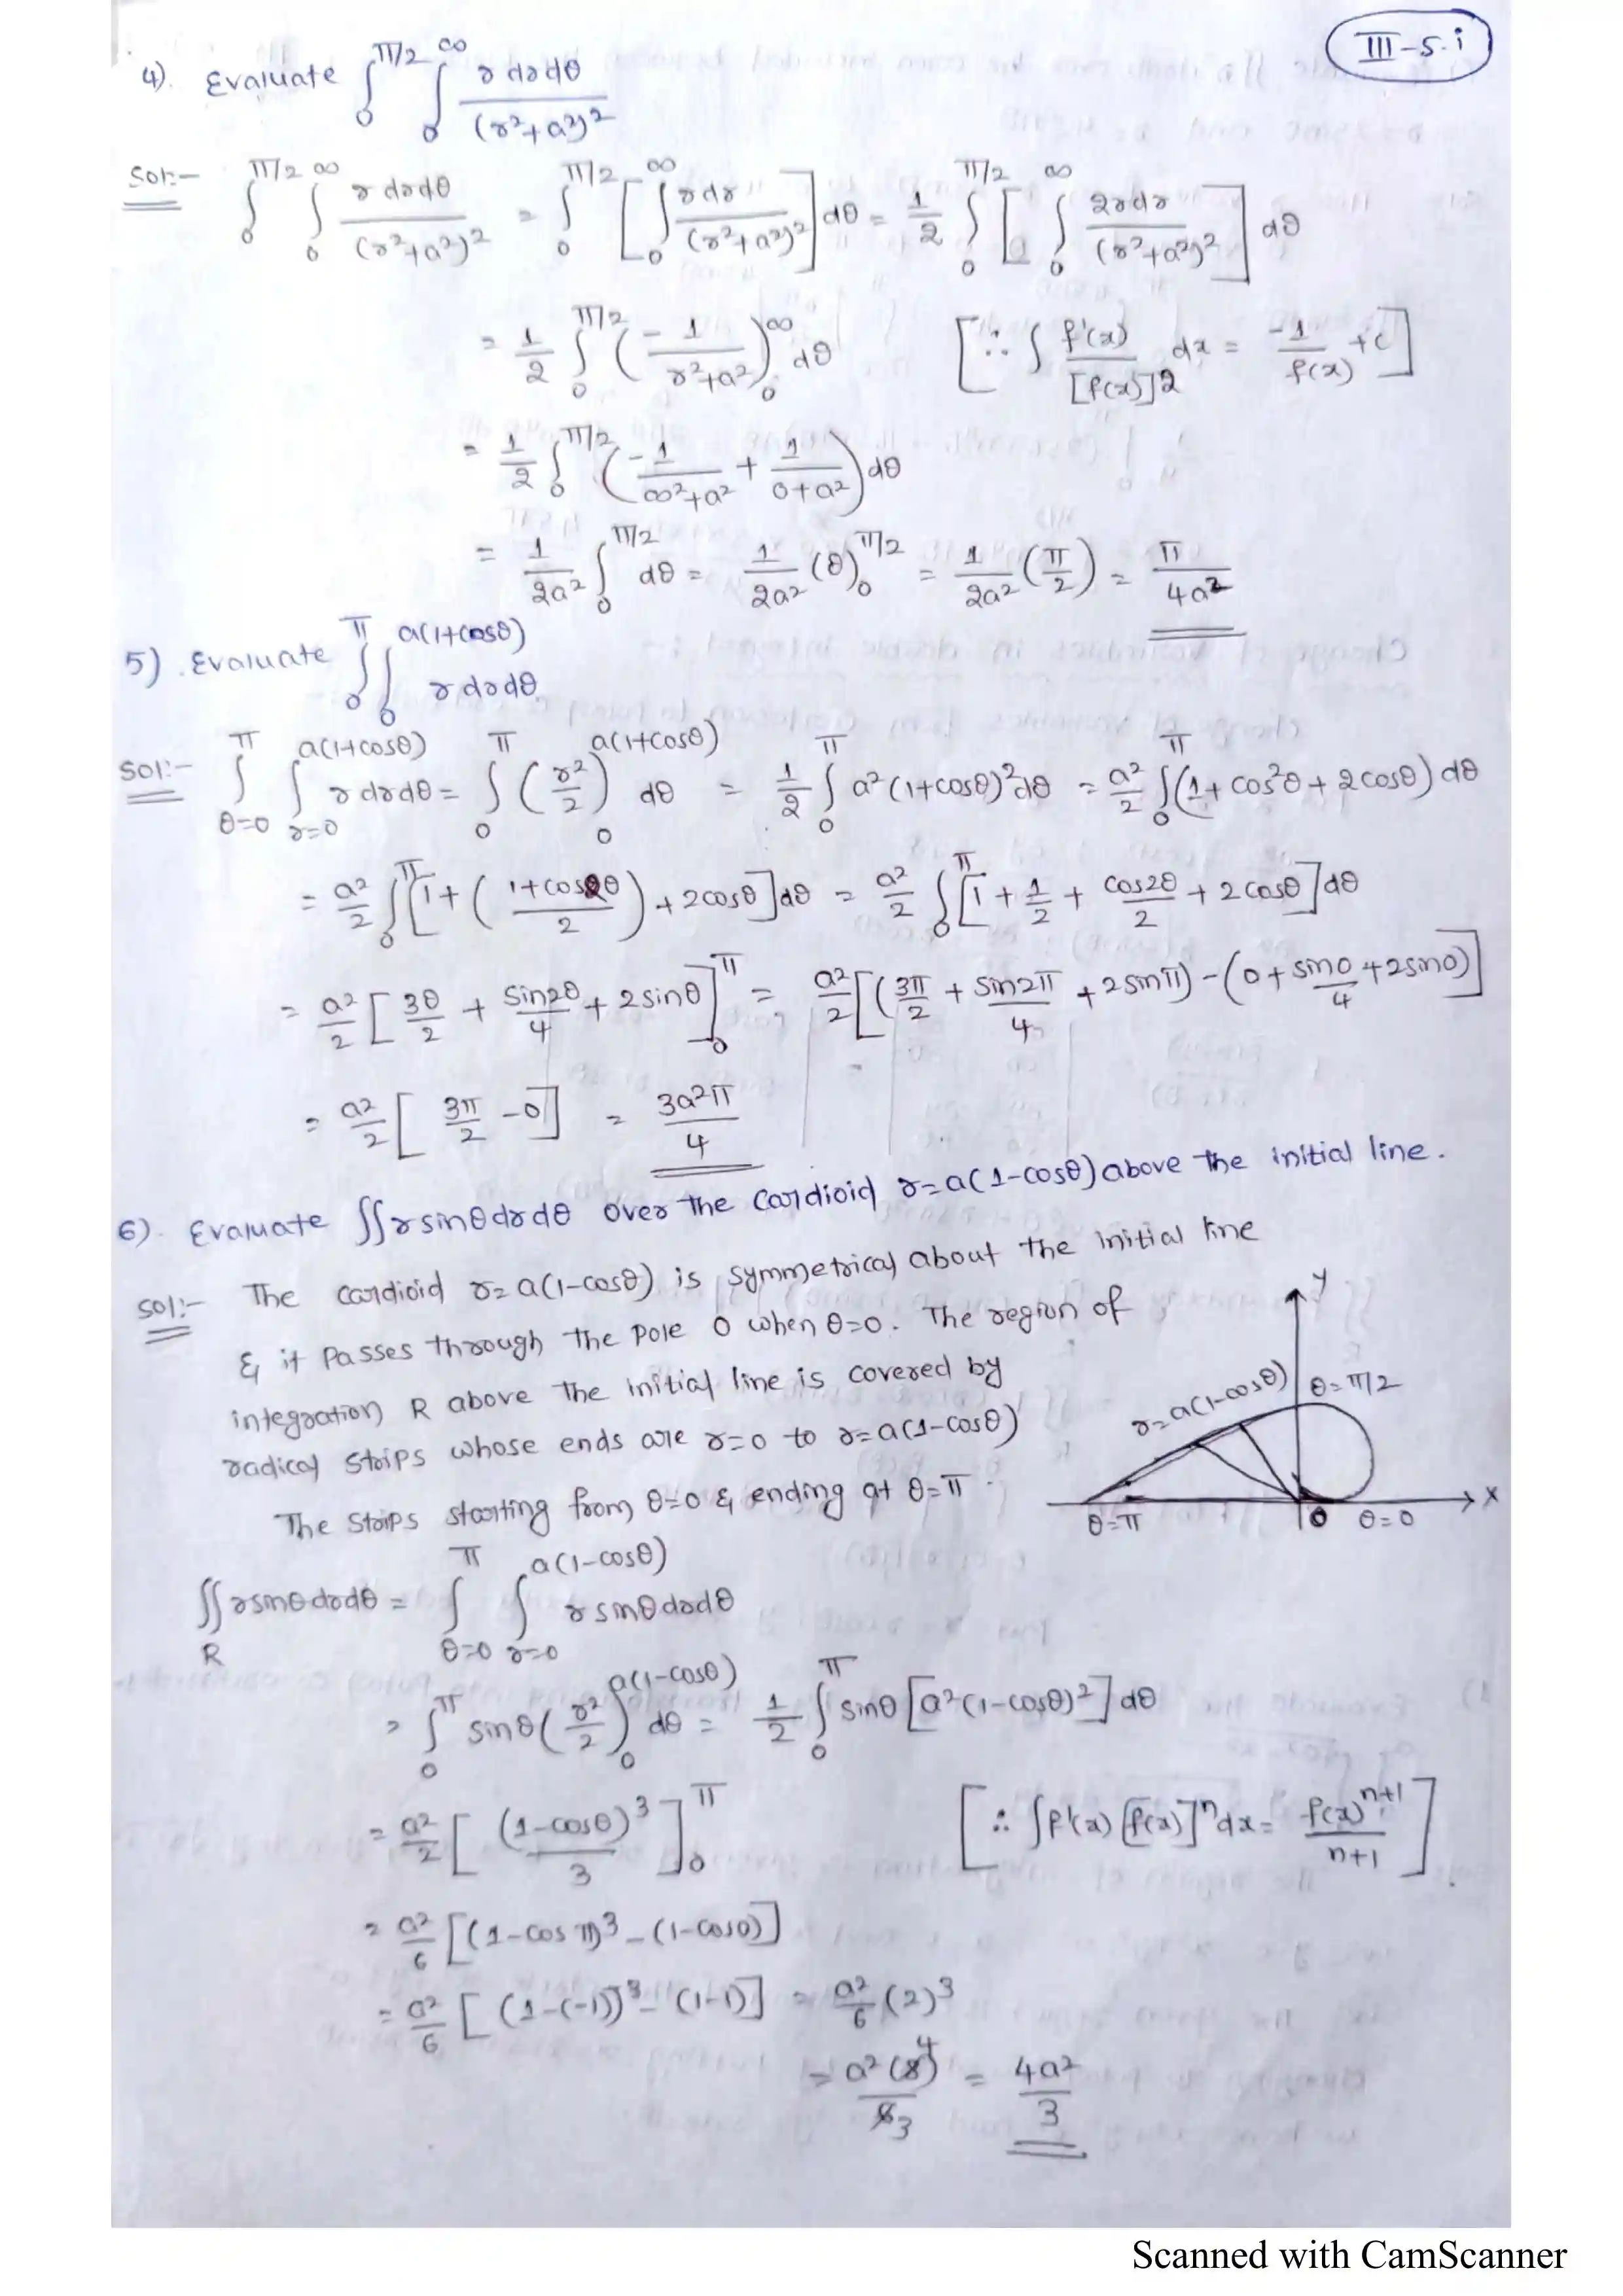 III-S.i
4). Evaluate ∫₀^{π/2} ∫₀^∞ r dr dθ / (r²+a²)²
Sol:- ∫₀^{π/2} ∫₀^∞ r dr dθ / (r²+a²)² = ∫₀^{π/2} [∫₀^∞ r dr / (r²+a²)²] dθ = 1/2 ∫₀^{π/2} [∫₀^∞ 2r dr / (r²+a²)²] dθ
= 1/2 ∫₀^{π/2} (-1/(r²+a²))₀^∞ dθ [∵ ∫ f'(x)/[f(x)]² dx = -1/f(x) + c]
= 1/2 ∫₀^{π/2} (-1/(∞²+a²) + 1/(0+a²)) dθ
= 1/2a² ∫₀^{π/2} dθ = 1/2a² (θ)₀^{π/2} = 1/2a² (π/2) = π/4a²
5). Evaluate ∫₀^π ∫₀^{a(1+cosθ)} r dr dθ
Sol:- ∫_{θ=0}^π ∫_{r=0}^{a(1+cosθ)} r dr dθ = ∫₀^π (r²/2)₀^{a(1+cosθ)} dθ = 1/2 ∫₀^π a²(1+cosθ)² dθ = a²/2 ∫₀^π (1+cos²θ+2cosθ) dθ
= a²/2 ∫₀^π [1+((1+cos2θ)/2)+2cosθ] dθ = a²/2 ∫₀^π [1+1/2+cos2θ/2+2cosθ] dθ
= a²/2 [3θ/2 + sin2θ/4 + 2sinθ]₀^π = a²/2 [(3π/2 + sin2π/4 + 2sinπ) - (0 + sin0/4 + 2sin0)]
= a²/2 [3π/2 - 0] = 3a²π/4
6). Evaluate ∫∫ r sinθ dr dθ over the cardioid r=a(1-cosθ) above the initial line.
Sol:- The cardioid r=a(1-cosθ) is symmetrical about the initial line
& it passes through the pole O when θ=0. The region of
integration R above the initial line is covered by
radical strips whose ends are r=0 to r=a(1-cosθ)
The strips starting from θ=0 & ending at θ=π.
y
r=a(1-cosθ) θ=π/2
x
θ=π O θ=0
∫∫_R r sinθ dr dθ = ∫_{θ=0}^π ∫_{r=0}^{a(1-cosθ)} r sinθ dr dθ
= ∫₀^π sinθ (r²/2)₀^{a(1-cosθ)} dθ = 1/2 ∫₀^π sinθ [a²(1-cosθ)²] dθ
= a²/2 [(1-cosθ)³/3]₀^π [∵ ∫f'(x) [f(x)]ⁿ dx = f(x)ⁿ⁺¹/(n+1)]
= a²/6 [(1-cosπ)³ - (1-cos0)]
= a²/6 [(1-(-1))³ - (1-1)] = a²/6 (2)³
= a²(8)4/6 3 = 4a²/3
Scanned with CamScanner